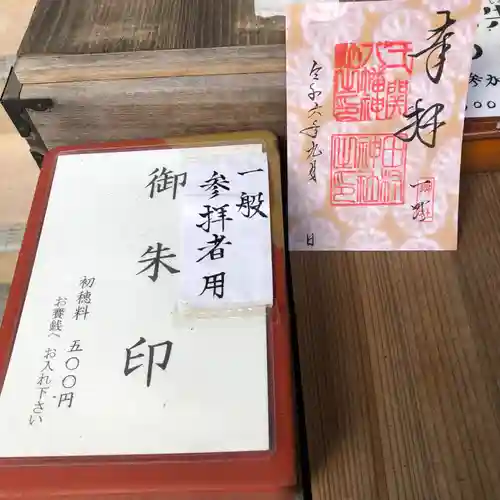 奉拝
令和六年九月
日
一般
参拝者用
御朱印
初穂料 五〇〇円
お賽銭へ お入れ下さい